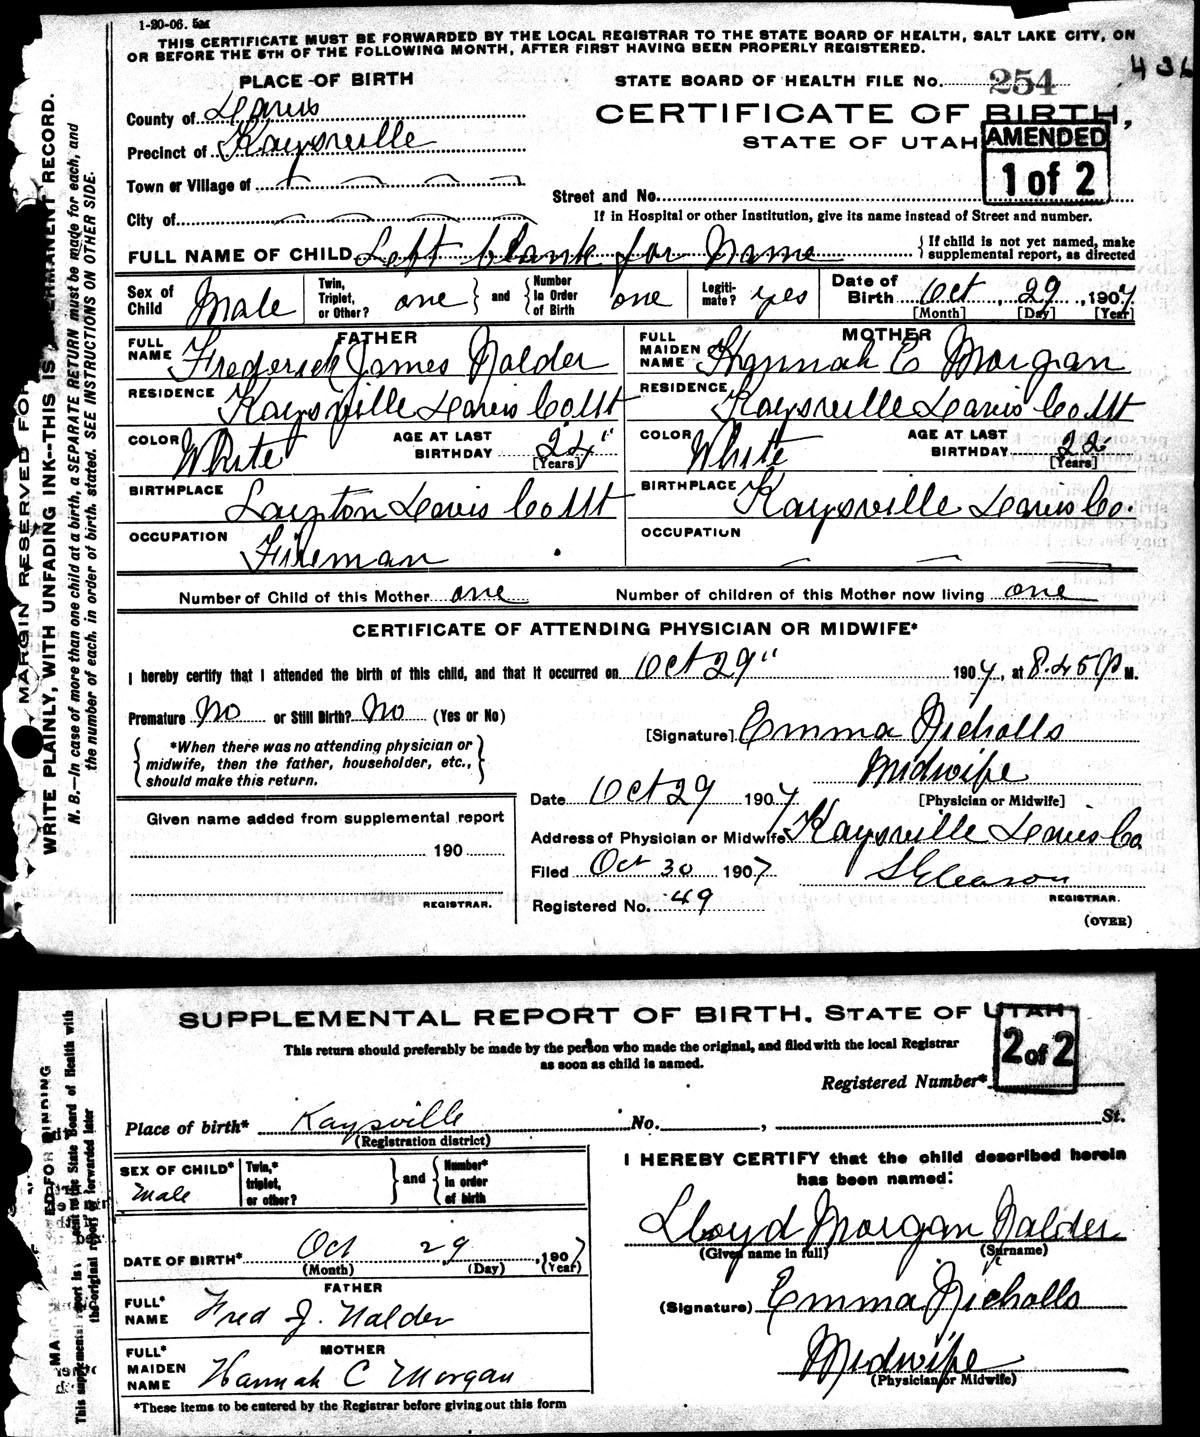 1-20-06. 5M
THIS CERTIFICATE MUST BE FORWARDED BY THE LOCAL REGISTRAR TO THE STATE BOARD OF HEALTH, SALT LAKE CITY, ON
OR BEFORE THE 5TH OF THE FOLLOWING MONTH, AFTER FIRST HAVING BEEN PROPERLY REGISTERED.
PLACE OF BIRTH
STATE BOARD OF HEALTH FILE No. 254
County of Davis
CERTIFICATE OF BIRTH,
Precinct of Kaysville
STATE OF UTAH
AMENDED
1 of 2
Town or Village of
Street and No.
City of
If in Hospital or other Institution, give its name instead of Street and number.
FULL NAME OF CHILD Left blank for Name {If child is not yet named, make
supplemental report, as directed
Sex of Child Male Twin, Triplet, or Other? one } and { Number In Order of Birth one Legiti-mate? yes Date of Birth Oct, 29, 1907
[Month] [Day] [Year]
FATHER MOTHER
FULL NAME Frederick James Nalder FULL MAIDEN NAME Hannah C Morgan
RESIDENCE Kaysville Davis Co Ut RESIDENCE Kaysville Davis Co Ut
COLOR White AGE AT LAST BIRTHDAY 24" [Years] COLOR White AGE AT LAST BIRTHDAY 22 [Years]
BIRTHPLACE Layton Davis Co Ut BIRTHPLACE Kaysville Davis Co.
OCCUPATION Fireman OCCUPATION
Number of Child of this Mother one Number of children of this Mother now living one
CERTIFICATE OF ATTENDING PHYSICIAN OR MIDWIFE*
I hereby certify that I attended the birth of this child, and that it occurred on Oct 29" 1907, at 8.45 P M.
Premature No or Still Birth? No (Yes or No)
[Signature] Emma Nicholls
{ *When there was no attending physician or
midwife, then the father, householder, etc.,
should make this return. }
Midwife
[Physician or Midwife]
Date Oct 29 1907
Given name added from supplemental report
Address of Physician or Midwife Kaysville Davis Co
190
Filed Oct 30 1907 S Gleason
REGISTRAR. REGISTRAR.
Registered No. 49
(OVER)
MARGIN RESERVED FOR
WRITE PLAINLY, WITH UNFADING INK--THIS IS PERMANENT RECORD.
N. B.--In case of more than one child at a birth, a SEPARATE RETURN must be made for each, and
the number of each, in order of birth, stated. SEE INSTRUCTIONS ON OTHER SIDE.
SUPPLEMENTAL REPORT OF BIRTH, STATE OF UTAH
2 of 2
This return should preferably be made by the person who made the original, and filed with the local Registrar
as soon as child is named.
Registered Number*
Place of birth* Kaysville No. , St.
(Registration district)
SEX OF CHILD* Male Twin,* triplet, or other? } and { Number* in order of birth
I HEREBY CERTIFY that the child described herein
has been named:
Lloyd Morgan Nalder
(Given name in full) (Surname)
DATE OF BIRTH* Oct 29, 1907
(Month) (Day) (Year)
FATHER
FULL* NAME Fred J. Nalder
(Signature) Emma Nicholls
MOTHER
FULL* MAIDEN NAME Hannah C Morgan
Midwife
(Physician or Midwife)
*These items to be entered by the Registrar before giving out this form